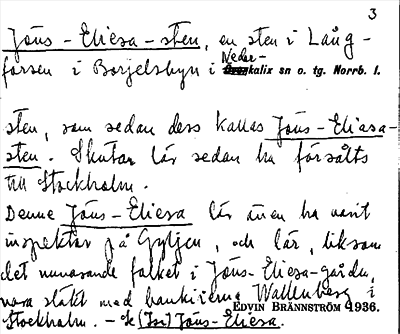 3
Jöns-Eliesa-sten, en sten i Lång-
forsen i Börjelsbyn i Neder-
kalix sn o. tg. Norrb. l.
sten, som sedan dess kallas Jöns-Eliasa-
sten. Skutan lär sedan ha försålts
till Stockholm.
Denne Jöns-Eliesa lär även ha varit
inspektor på Gyljen, och lär, liksom
det nuvarande folket i Jöns-Eliesa-gården,
vara släkt med bankirerna Wallenberg i
EDVIN BRÄNNSTRÖM 1936.
Stockholm. - Jöns-Eliesa.